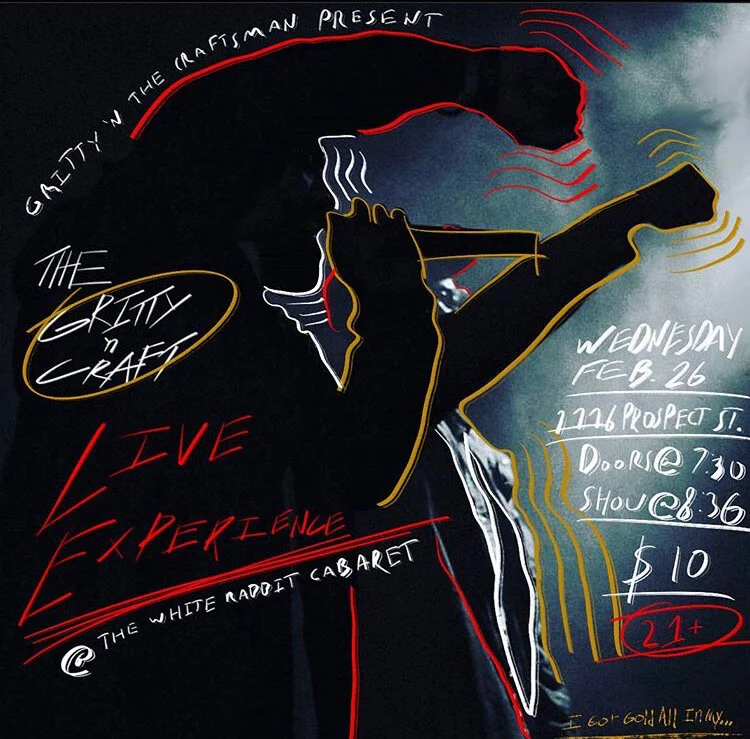 GRITTY 'N THE CRAFTSMAN PRESENT
THE
GRITTY
n
CRAFT
LIVE
EXPERIENCE
@ THE WHITE RABBIT CABARET
WEDNESDAY
FEB. 26
1116 PROSPECT ST.
DOORS@ 7:30
SHOW@8:36
$10
21+
I GOT GOLD ALL IN MY...